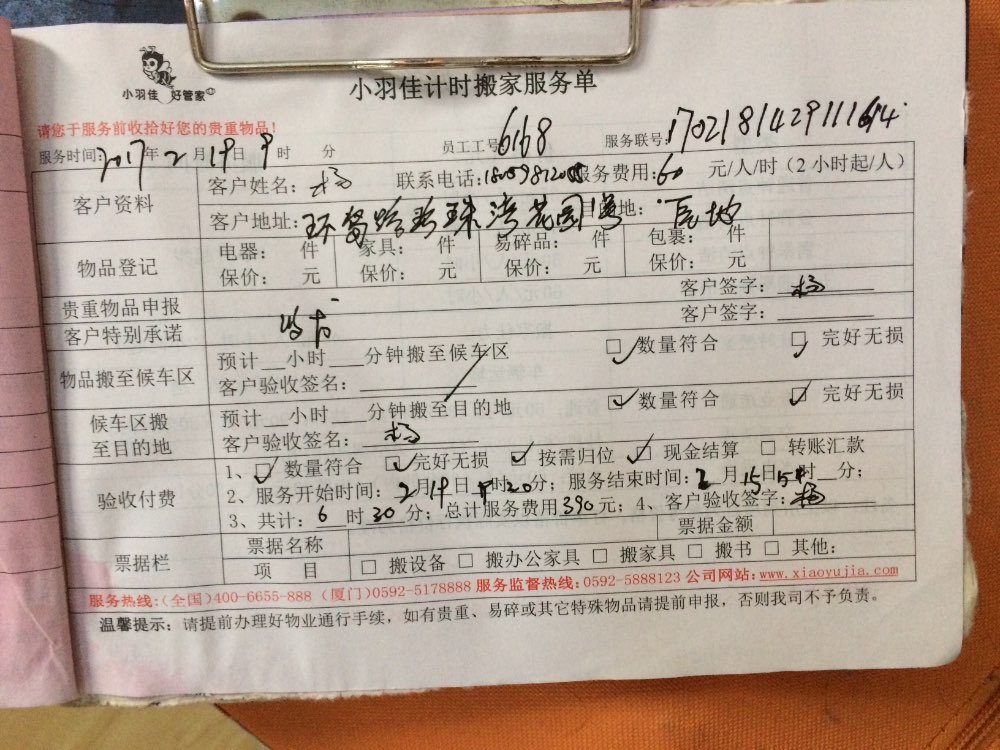 小羽佳 好管家
小羽佳计时搬家服务单
请您于服务前收拾好您的贵重物品！
服务时间：2017年2月19日9时 分 员工工号：6168 服务联号：
客户资料 客户姓名：杨 联系电话： 服务费用：60 元/人/时（2 小时起/人）
客户地址：环岛路珍珠湾花园 地：
物品登记 电器： 件 家具： 件 易碎品： 件 包裹： 件
保价： 元 保价： 元 保价： 元 保价： 元
贵重物品申报 客户签字：杨
客户特别承诺 客户签字：
物品搬至候车区 预计__小时___分钟搬至候车区 □数量符合 □ 完好无损
客户验收签名：
候车区搬至目的地 预计__小时___分钟搬至目的地 □数量符合 □ 完好无损
客户验收签名：杨
验收付费 1、□ 数量符合 □完好无损 □ 按需归位 □ 现金结算 □ 转账汇款
2、服务开始时间：2月19日 时20分；服务结束时间：2月15日 时 分；
3、共计：6 时30分；总计服务费用390元；4、客户验收签字：杨
票据栏 票据名称 票据金额
项 目 □ 搬设备 □ 搬办公家具 □ 搬家具 □ 搬书 □ 其他：
服务热线：(全国)400-6655-888 (厦门)0592-5178888 服务监督热线：0592-5888123 公司网站：www.xiaoyujia.com
温馨提示：请提前办理好物业通行手续，如有贵重、易碎或其它特殊物品请提前申报，否则我司不予负责。